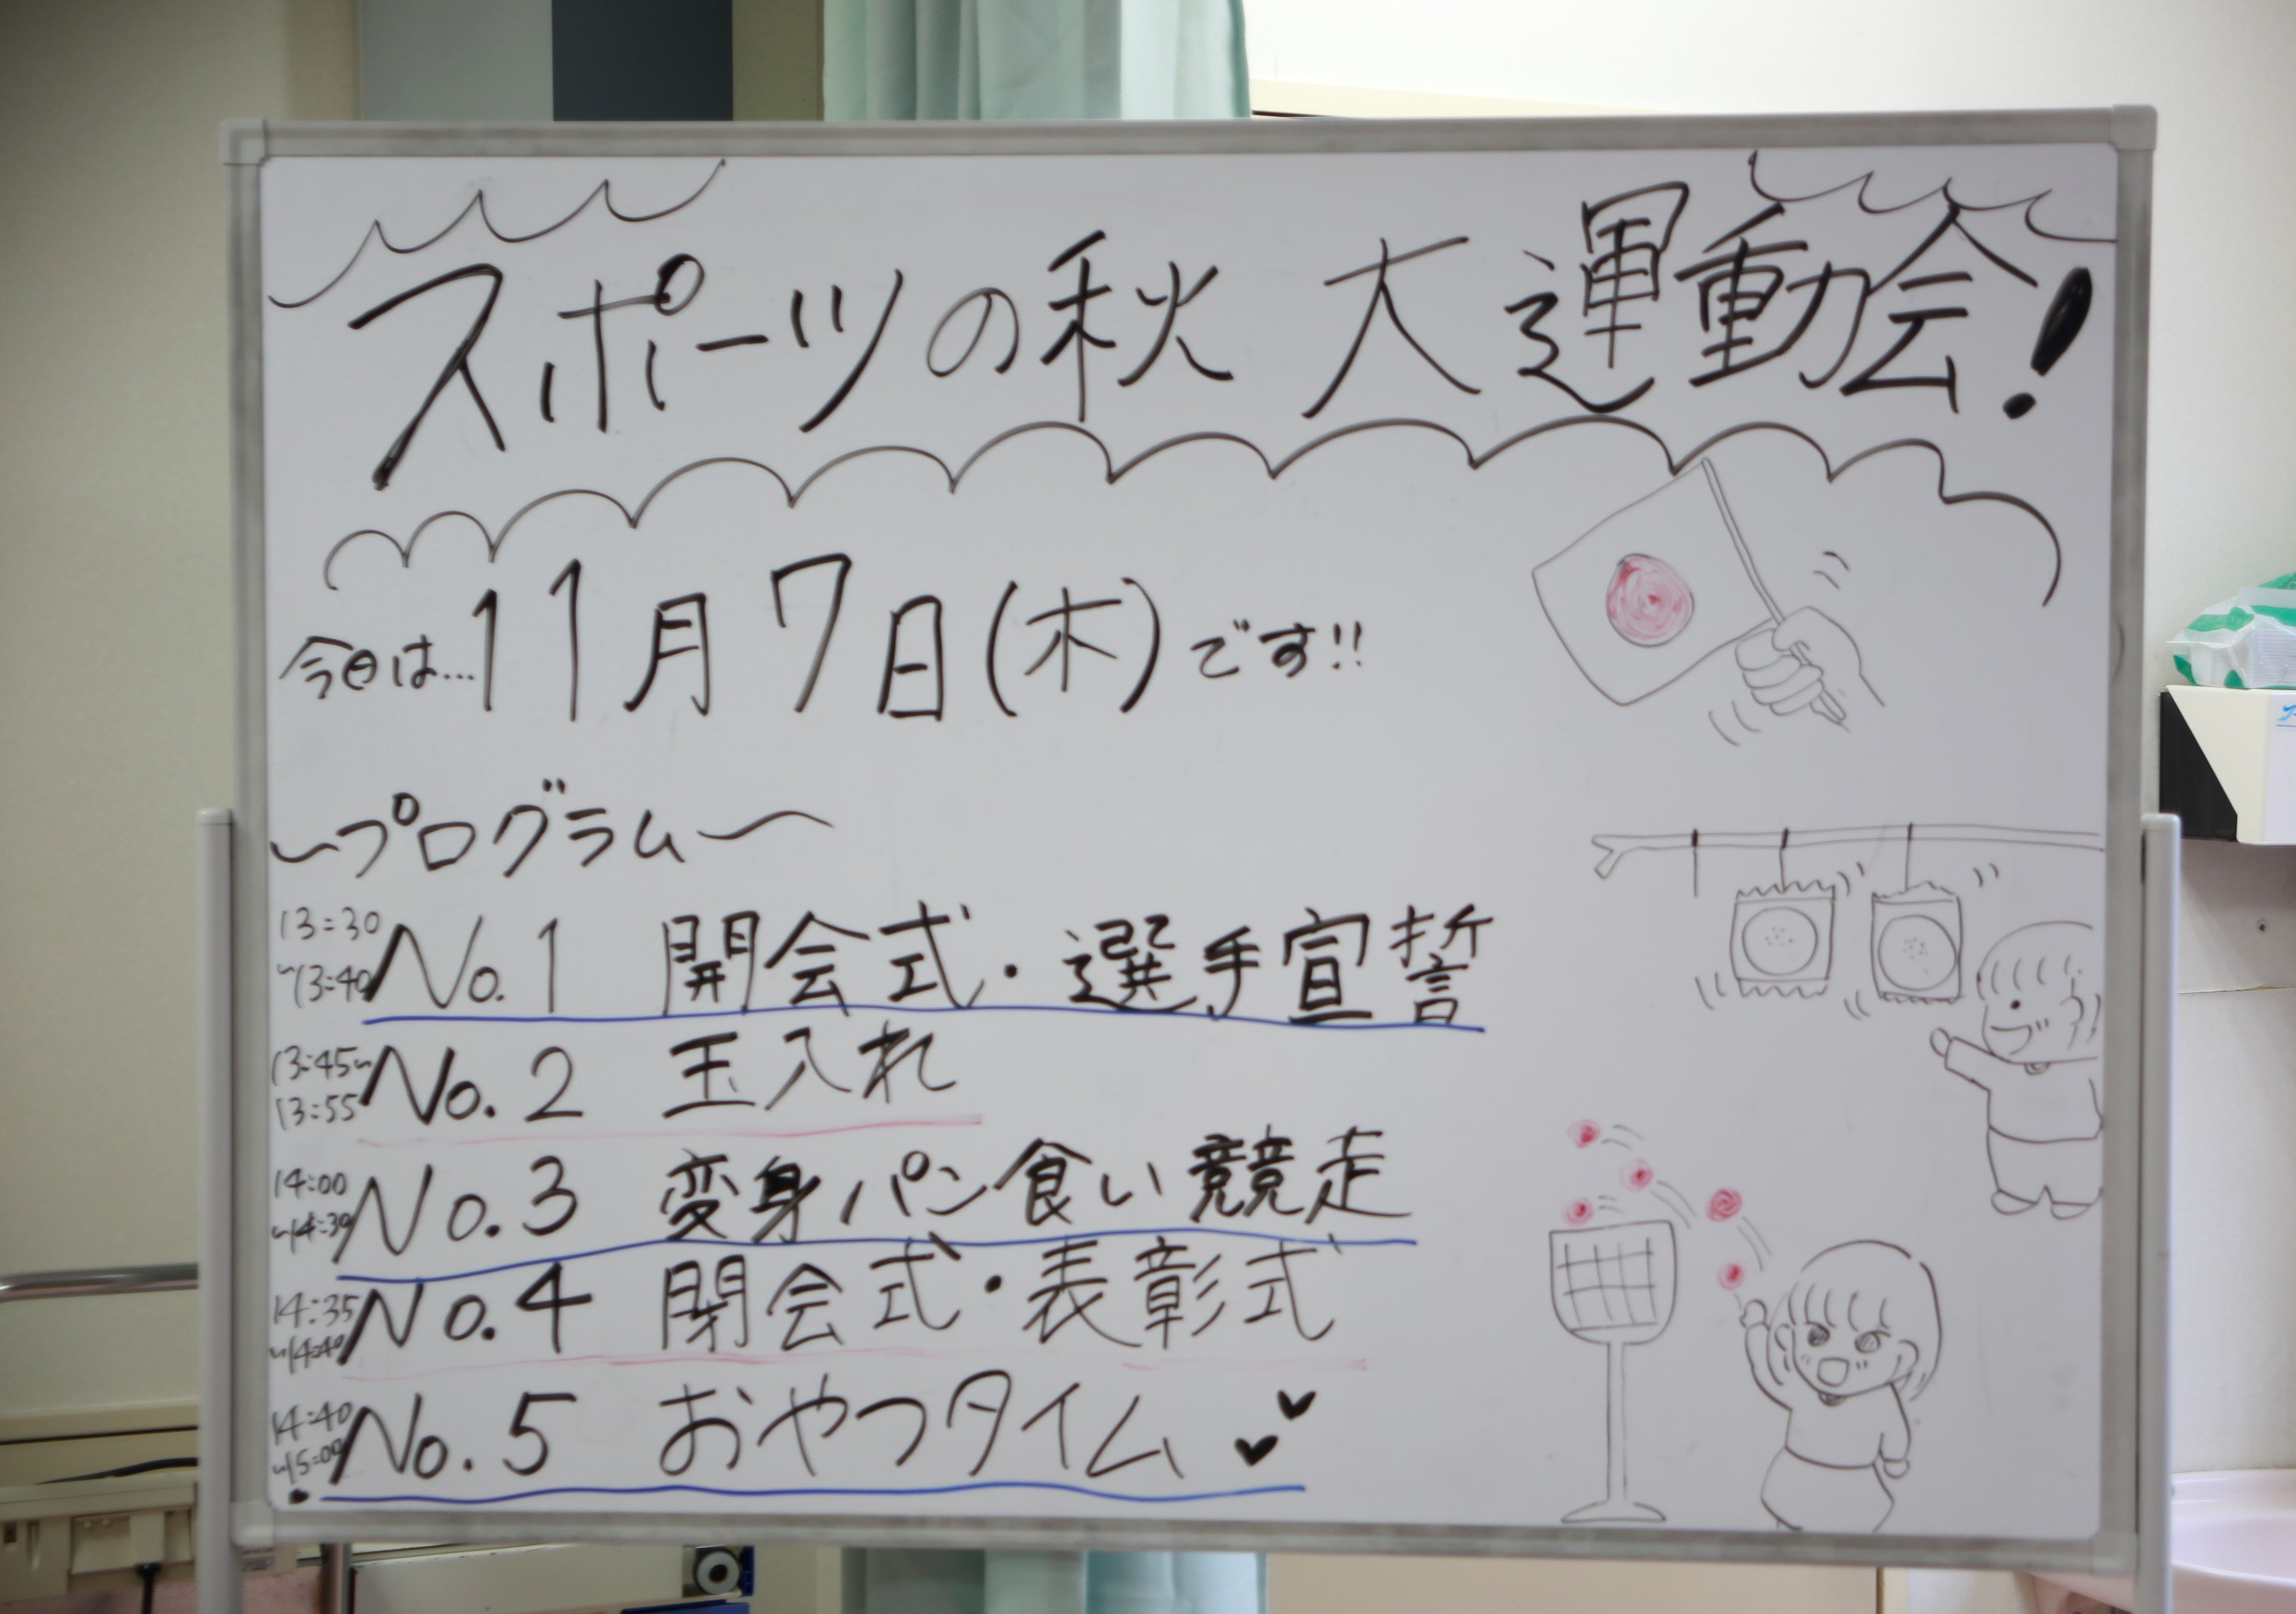 スポーツの秋 大運動会!
今日は…11月7日(木)です!!
~プログラム~
13:30
~13:40
No.1 開会式・選手宣誓
13:45~
13:55
No.2 玉入れ
14:00
~14:30
No.3 変身パン食い競走
14:35
~14:40
No.4 閉会式・表彰式
14:40
~15:00
No.5 おやつタイム